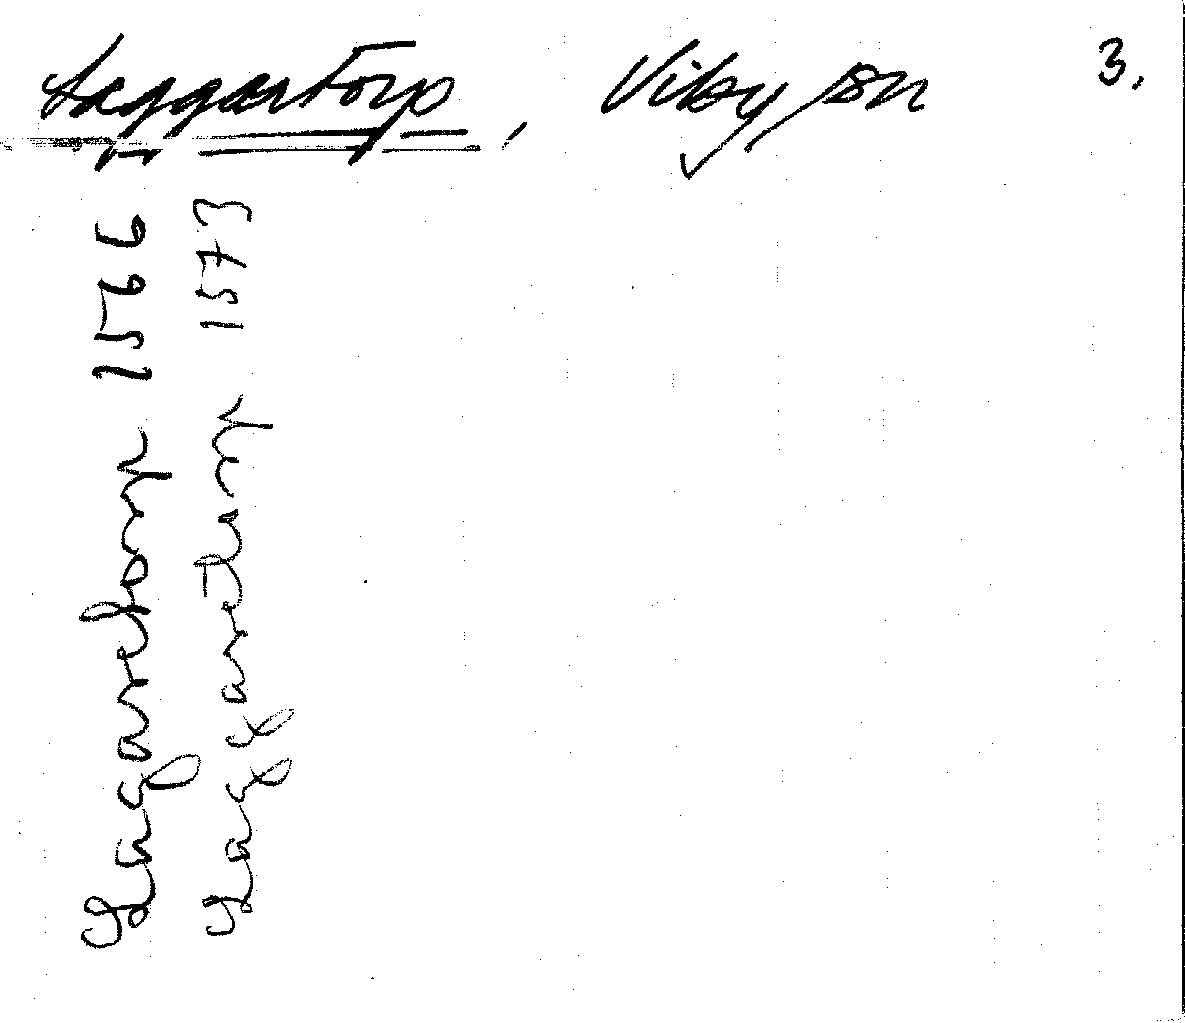 Laggartorp, Viby sn 3.
Lagaretorp 1566
Laggaretorp 1573